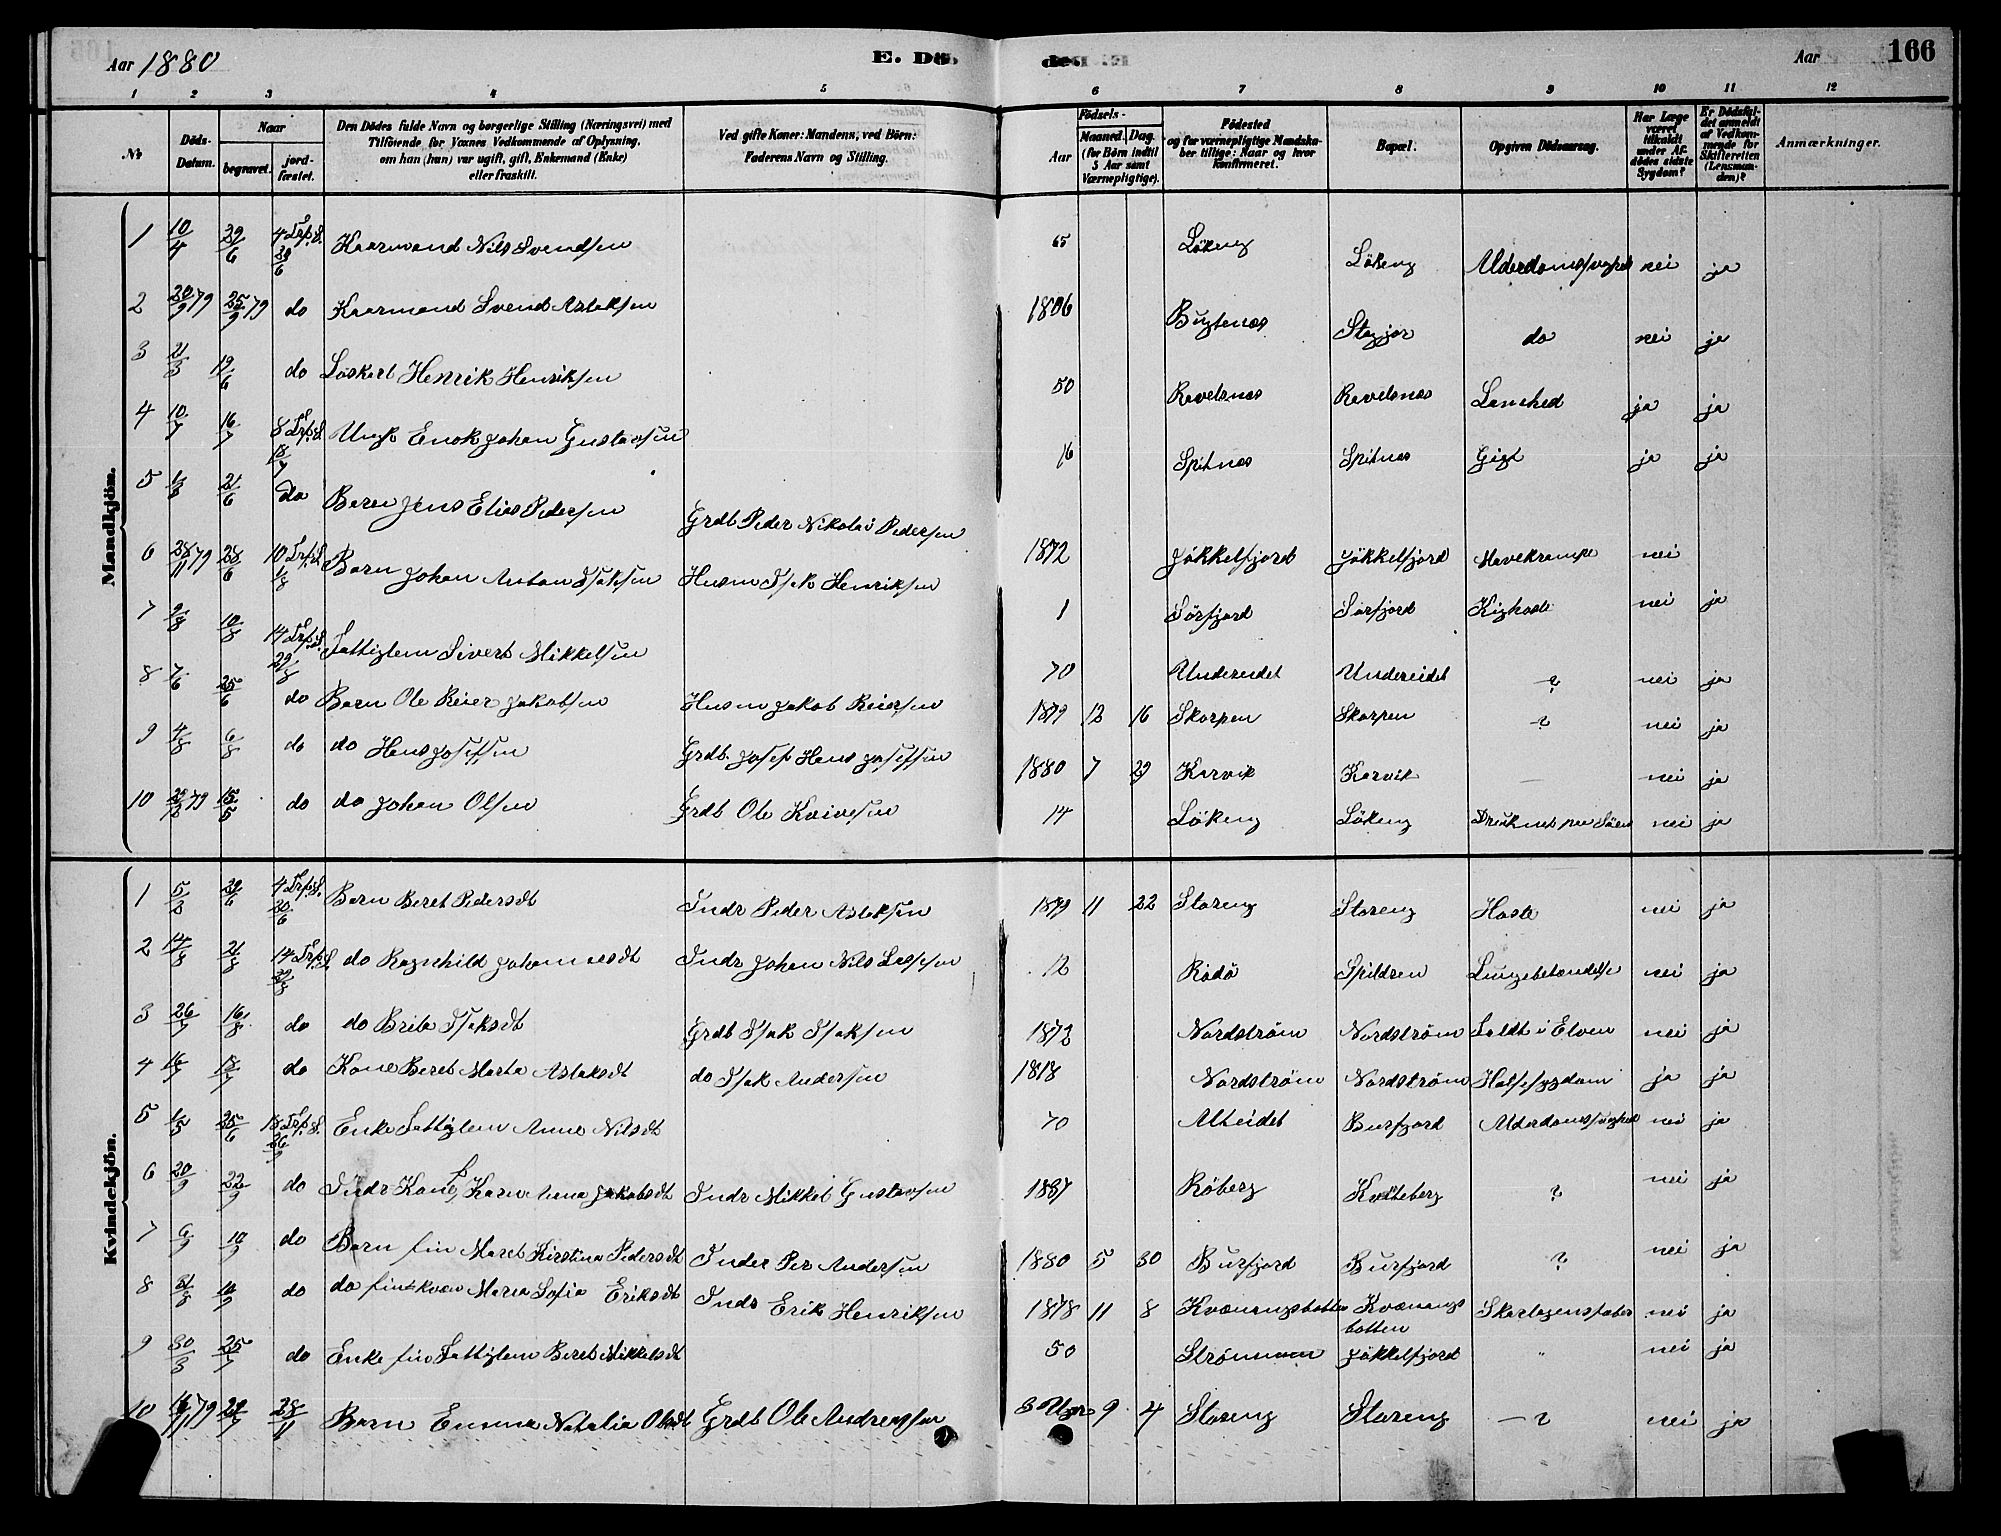 Aar 1880
E. Dö
des
Aar
166
1 2 3 4 5 6 7 8 9 10 11 12
No
Döds-Datum.
Naar
begravet.
jord-fæstet.
Den Dödes fulde Navn og borgerlige Stilling (Næringsvei) med
Tilföiende for Voxnes Vedkommende af Oplysning,
om han (hun) var ugift, gift, Enkemand (Enke)
eller fraskilt.
Ved gifte Koner: Mandens, ved Börn:
Faderens Navn og Stilling.
Födsels-
Aar
Maaned. Dag.
(for Börn indtil
5 Aar samt
Værnepligtige).
Födested
og for værnepligtige Mandska-
ber tillige: Naar og hvor
konfirmeret.
Bopæl.
Opgiven Dödsaarsag.
Har Læge
været
tilkaldt
under Af-
dödes sidste
Sygdom?
Er Dödsfal-
det anmeldt
af Vedkom-
mende for
Skifteretten
(Lensman-
den)?
Anmærkninger.
Mandkjön.
1 10/4 29/6 4 Trp.S. 20/6 Kaarmand Nils Svendsen 65 Løkeng Løkeng Alderdomssvaghed nei ja
2 20/9 79 25/9 79 do Kaarmand Svend Aslaksen 1806 Bugtenæs Stajjor do nei ja
3 21/3 19/6 do Løskarl Henrik Henriksen 50 Ravelsnæs Ravelsnæs Lamhed ja ja
4 10/7 16/7 8 Trp.S. 18/7 Ungk Enok Johan Gustavsen 16 Spitnæs Spitnæs Gigt ja ja
5 1/3 21/6 do Barn Jens Elias Pedersen Grdb Peder Nikolai Pedersen 1872 Jøkkelfjord Jøkkelfjord Mavekrampe nei
6 28/11 79 28/6 10 Trp.S. 1/8 Barn Johan Anton Isaksen Husm Isak Henriksen 1 Sørfjord Sørfjord Kighoste nei ja
7 2/8 10/8 14 Trp.S. 29/8 Fattiglem Sivert Mikkelsen 70 Undereidet Undereidet ? nei ja
8 7/6 25/6 do Barn Ole Reier Jakobsen Husm Jakob Reiersen 1879 12 16 Skorpen Skorpen ? nei ja
9 4/8 6/8 do do Hans Josefsen Grdb. Josef Hans Josefsen 1880 7 29 Karvik Karvik — nei ja
10 79 15/5 do do Johan Olsen Grdb Ole Kvivesen 14 Løkeng Løkeng Druknet paa Søen nei ja
Kvindekjön.
1 5/2 29/6 4 Trp.S. 20/6 Barn Beret Pedersdt Indr Peder Aslaksen 1879 11 22 Storeng Storeng Hoste nei ja
2 14/8 21/8 14 Trp.S. 29/8 do Ragnhild Johannesdt Indr Johan Nils Lassesen 12 Rødø Spildren Lungebetændelse nei ja
3 26/7 16/8 do do Brita Isaksdt Grdb Isak Isaksen 1872 Nordstrøm Nordstrøm Faldt i Elven nei ja
4 16/7 18/7 do Kone Beret Marta Aslaksdt do Isak Andersen 1818 Nordstrøm Nordstrøm Halsesygdom ja ja
5 1/5 25/6 18 Trp.S. 26/9 Enke Fattiglem Anne Nilsdt 70 Alteidet Burfjord Alderdomssvaghed nei ja
6 20/9 22/9 do Indr Kone Karn Anna Jakobsdt Indr Mikkel Gustavsen 1837 Røberg Kvitteberg ? nei ja
7 6/9 10/9 do Barn fin Maret Kirstina Pedersdt Inder Per Andersen 1880 5 30 Burfjord Burfjord ? nei ja
8 31/8 10/9 do do finskvæn Maria Sofia Eriksdt Indr Erik Henriksen 1878 11 8 Kvænangsbotten Kvænangs
botten Skarlagensfeber nei ja
9 30/3 25/7 do Enke fin Fattiglem Beret Mikkelsdt 50 Strømmen Jøkkelfjord " nei ja
10 16/11 79 29/7 28/11 Barn Emma Natalia Olsdt Grdb Ole Andreassen 3 Uger 9 4 Storeng Storeng —? nei ja